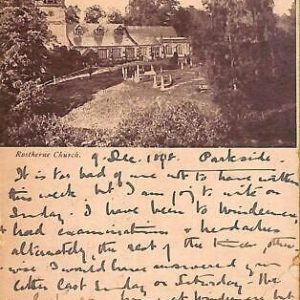 Rostherne Church.
9. Dec. 1898. Parkside.
It is too bad of me not to have written
this week but I am going to write on
Sunday. I have been to Windermere,
& had examinations & headaches
alternately, the rest of the time, other
wise I would have answered your
letter last Sunday or Saturday. The
at Windermere but